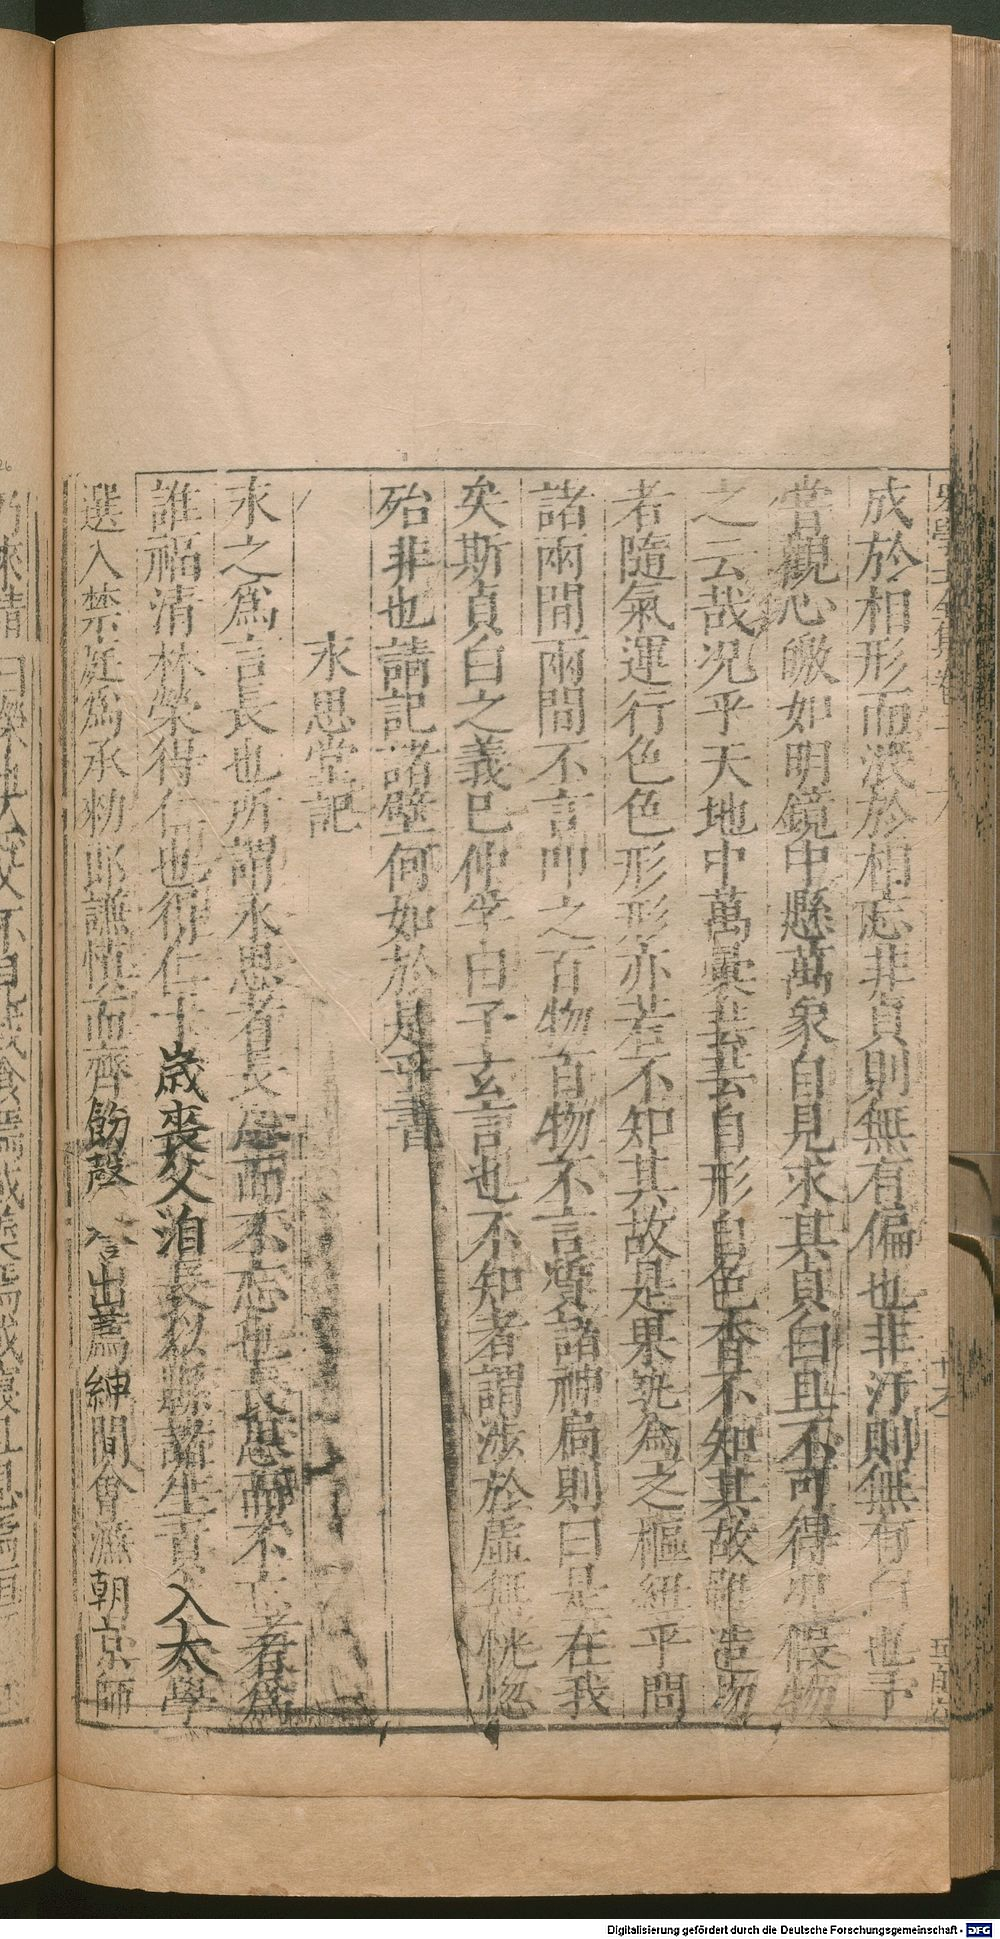 成於相形而泯於相忘非貞則無有偏也非汙則無有白也予
嘗觀心曒如明鏡中懸萬象自見求其貞白且不可得況假物
之云哉况乎天地中萬彙芸芸自形自色杳不知其故雖造物
者隨氣運行色色形形亦若不知其故是果孰為之樞紐乎問
諸兩間兩間不言叩之百物百物不言質諸神扃則曰是在我
矣斯貞白之義巳仲孚曰子玄言也不知者謂涉於虛無恍惚
殆非也請記諸壁何如於是乎書
永思堂記
永之為言長也所謂永思者長思而不忘也長思而不忘者為
誰福清林榮得仁也得仁十歲喪父洎長以縣諸生貢入太學
選入禁庭為承勑郎謹慎而齊飭聲 出薦紳間會濂朝京師
Digitalisierung gefördert durch die Deutsche Forschungsgemeinschaft - DFG